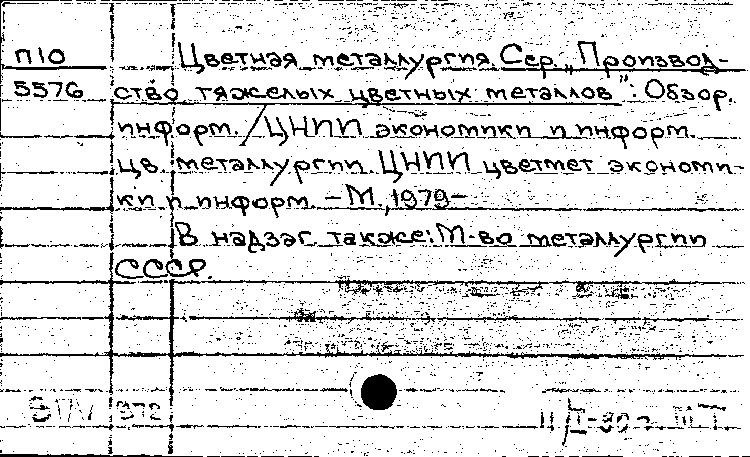 П10 Цветная металлургия. Сер. „Производ-
5576 ство тяжелых цветных металлов": Обзор.
информ. / ЦНИИ экономики и информ.
цв. металлургии. ЦНИИ цветмет экономи-
ки и информ. – М., 1979–
В надзаг. также: М-во металлургии
СССР.
972